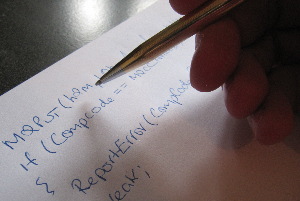 MQPUT(hQm
If (CompCode == MQCC
{ ReportError(CompCode
eak;